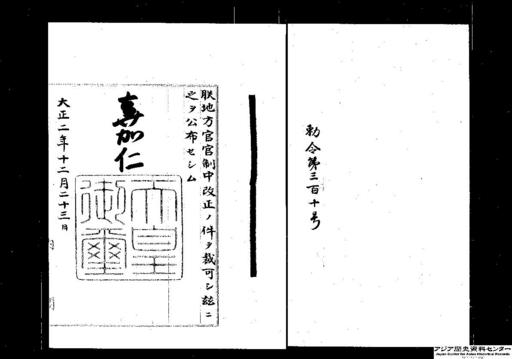 勅令第三百十号
朕地方官官制中改正ノ件ヲ裁可シ茲ニ
之ヲ公布セシム
嘉仁
天皇御璽
大正二年十二月二十三日
アジア歴史資料センター
Japan Center for Asian Historical Records